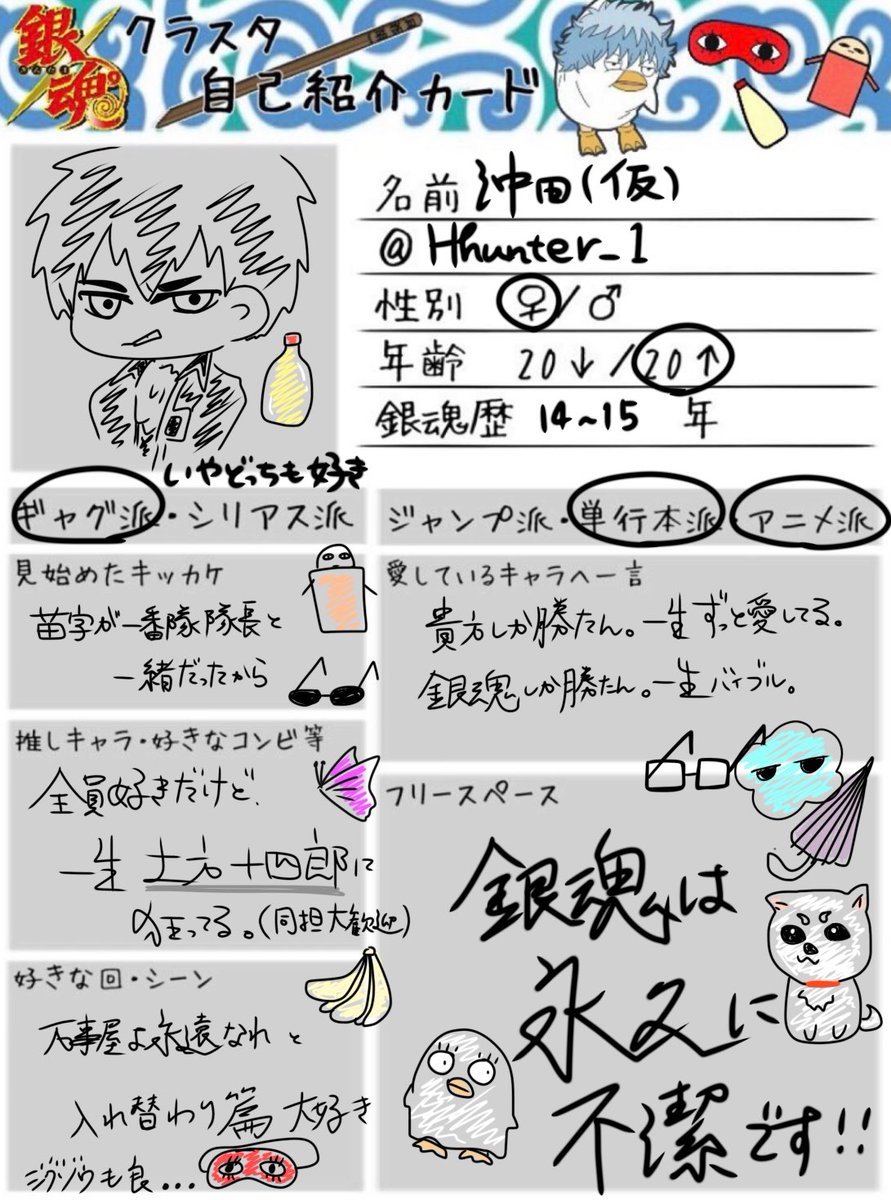 銀魂 クラスタ
自己紹介カード
名前 沖田(仮)
@ Hhunter_1
性別 ♀/♂
年齢 20↓/20↑
銀魂歴 14~15 年
いやどっちも好き
ギャグ派・シリアス派
ジャンプ派・単行本派・アニメ派
見始めたキッカケ
苗字が一番隊隊長と
一緒だったから
愛しているキャラへ一言
貴方しか勝たん。一生ずっと愛してる。
銀魂しか勝たん。一生バイブル。
推しキャラ・好きなコンビ等
全員好きだけど、
一生 土方十四郎に
狂ってる。(同担大歓迎)
好きな回・シーン
万事屋よ永遠なれと
入れ替わり篇 大好き
ジグゾウも良...
フリースペース
銀魂は
永久に
不潔です!!